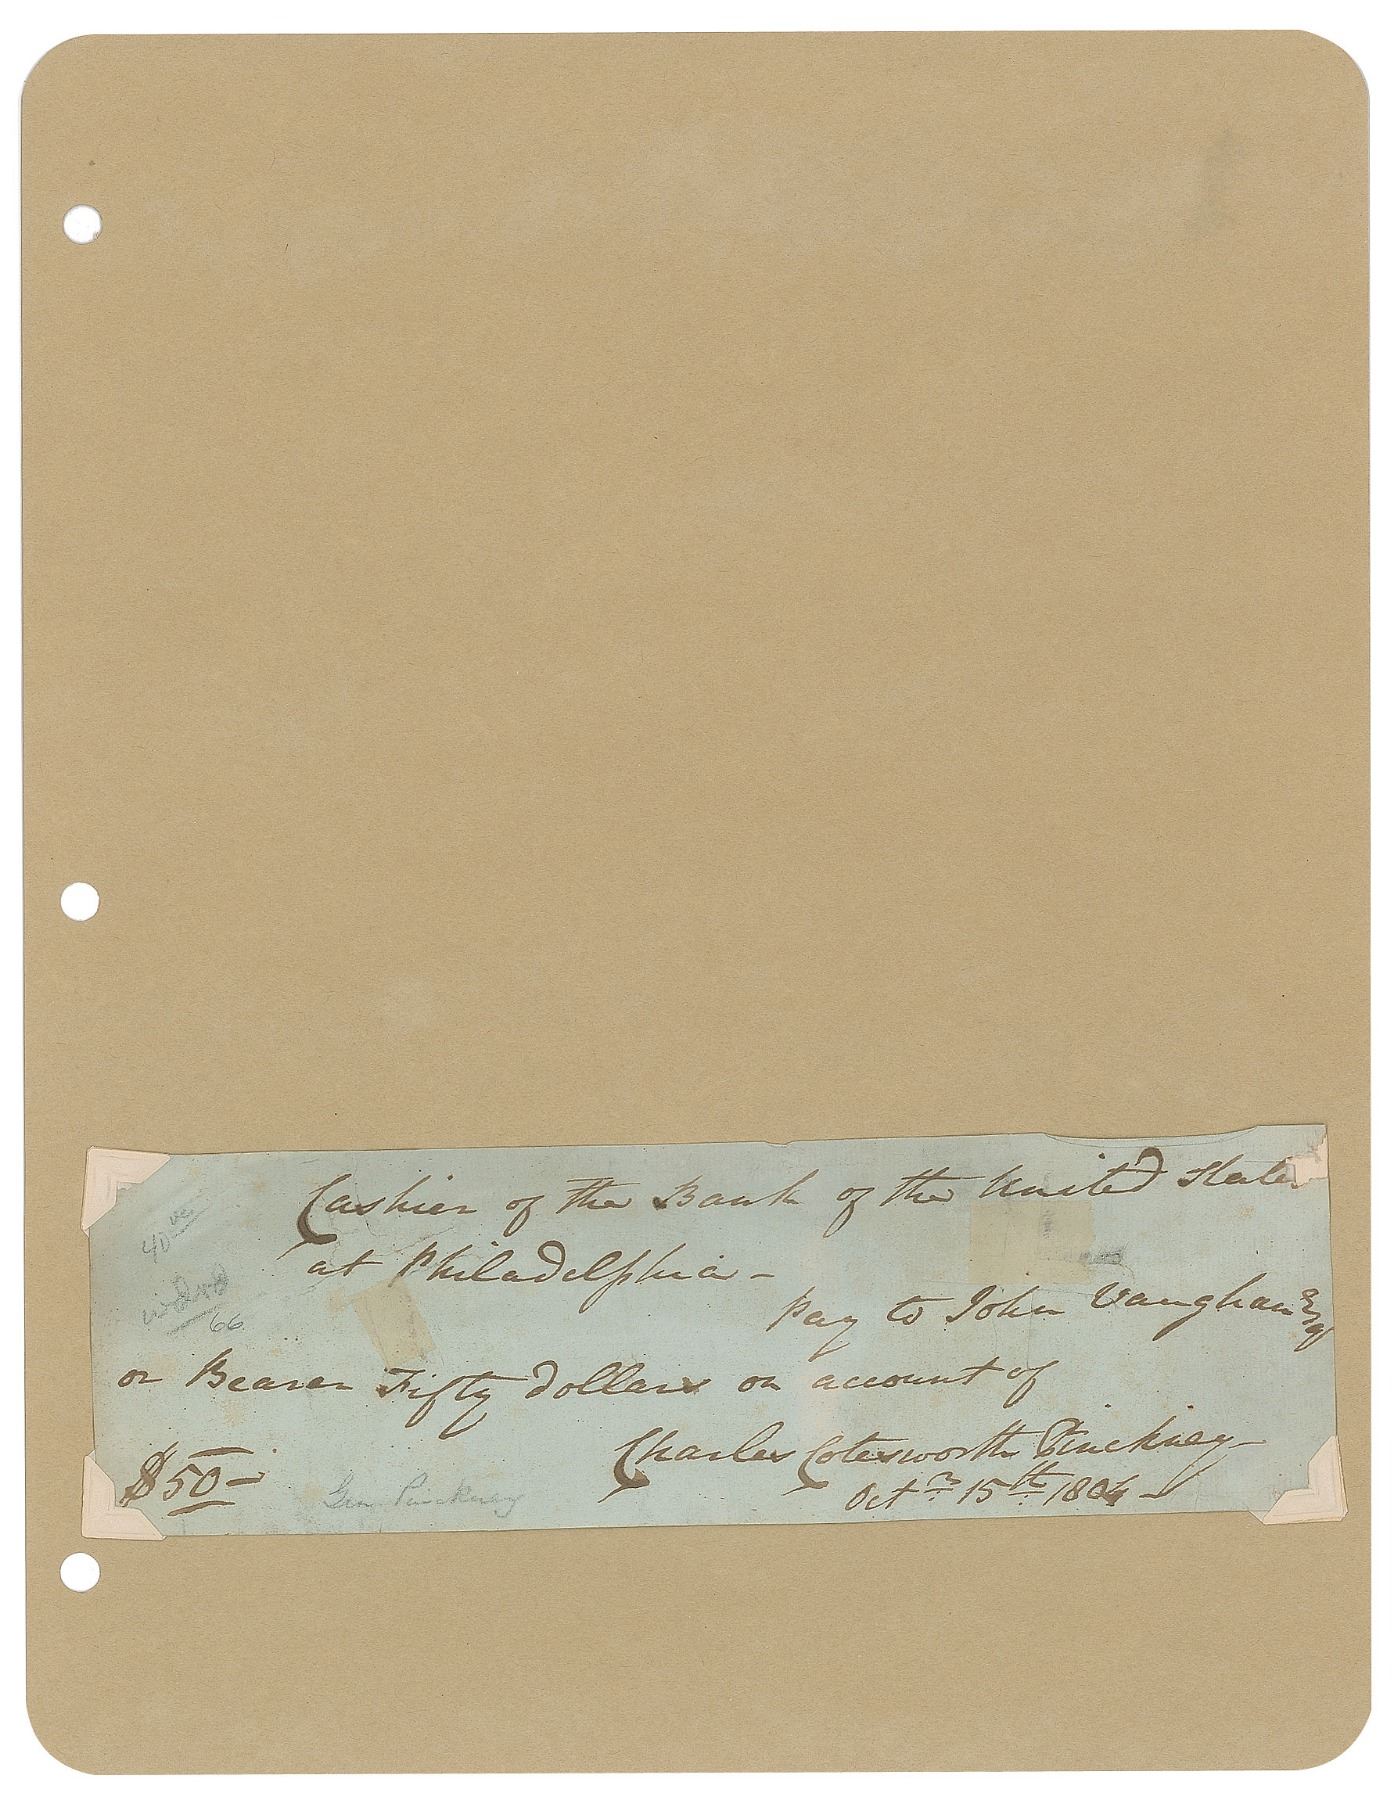 Cashier of the Bank of the United States
at Philadelphia -
Pay to John Vaughan Esq
or Bearer Fifty dollars on account of
Charles Cotesworth Pinckney -
$50-
Octr 15th 1804 -
Gen Pinckney
40
66